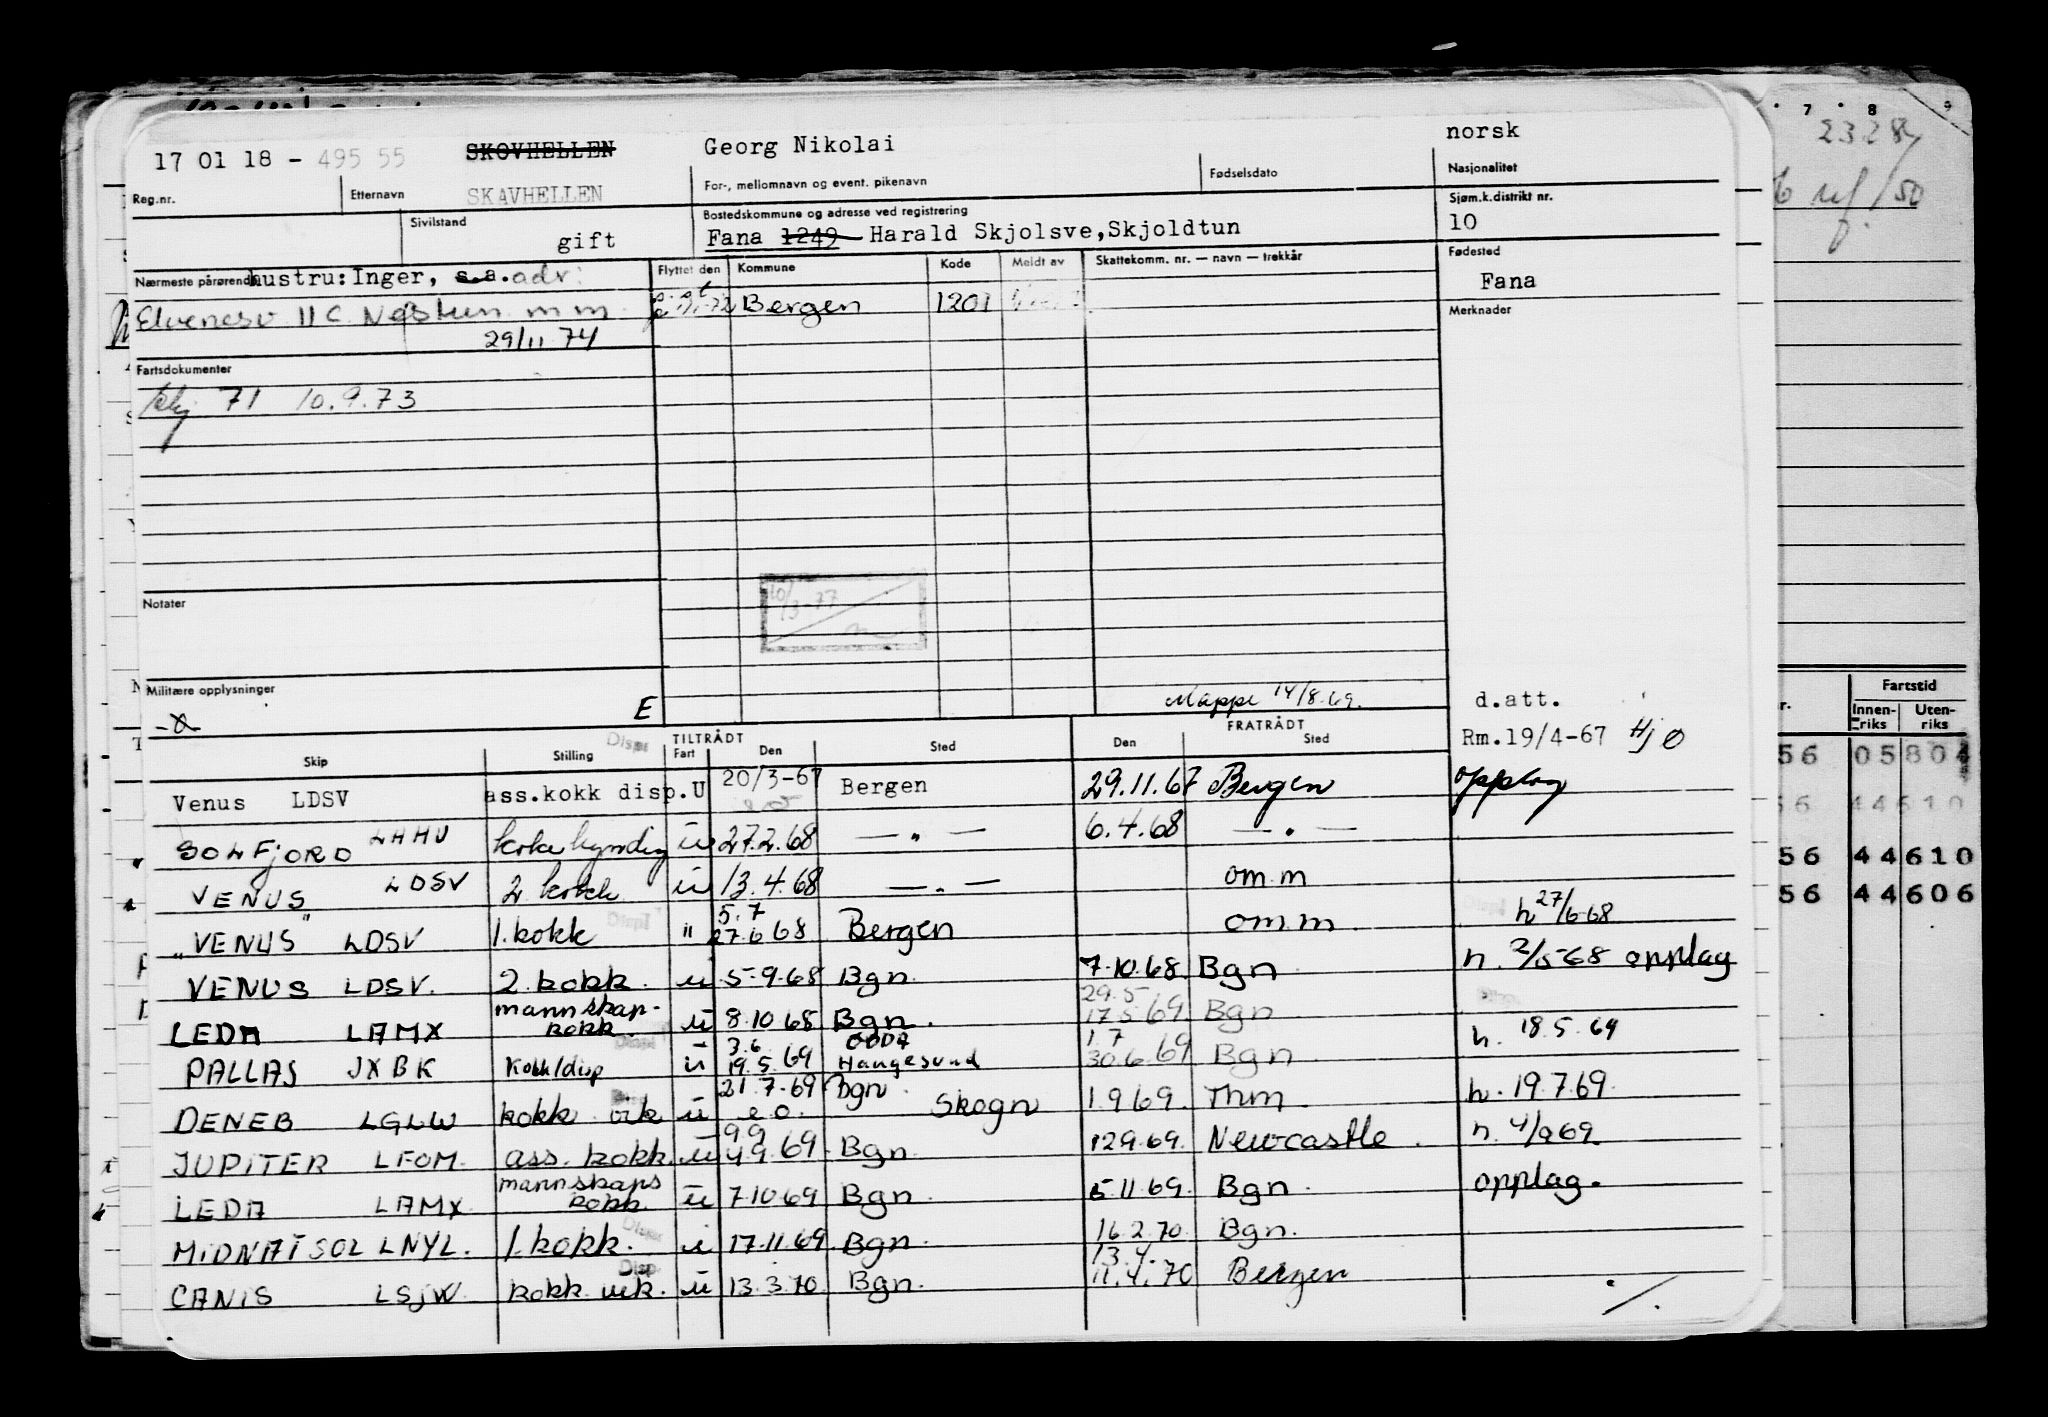 7 8 9
17 01 18 - 495 55 SKOVHELLEN Georg Nikolai norsk
Reg.nr. Etternavn SKAVHELLEN For-, mellomnavn og event. pikenavn Fødselsdato Nasjonalitet
Sivilstand gift Bostedskommune og adresse ved registrering Sjøm.k.distrikt nr.
Fana 1249 Harald Skjolsve,Skjoldtun 10
Nærmeste pårørende hustru:Inger, s.a. adr: Flyttet den Kommune Kode Meldt av Skattekomm. nr. — navn — trekkår Fødested
Fana
Elvenesv 11 C Nesttun m m Bergen 1201 Merknader
29/11 74
Fartsdokumenter
71 10.9.73
10/3-77
Notater
Militære opplysninger
E Mappe 14/8.69. d.att.
TILTRÅDT FRATRÅDT Rm.19/4-67 Hj Ø
Skip Stilling Disp Fart Den Sted Den Sted
Venus LDSV ass.kokk disp. U 20/3-67 Bergen 29.11.67 Bergen opplag
SOLFJORD LHHU kokk kyndig u 27.2.68 — " — 6.4.68 — " —
VENUS LDSV 2. kokk u 13.4.68 — " — om.m
"VENUS" LDSV 1. kokk " 5.7 27.6 68 Bergen om m. h 27/6-68
VENUS LDSV. 2. kokk. u 5-9.68 Bgn. 7.10.68. Bgn h. 2/5-68 opplag
LEDA LAMX mannskap-kokk. u 8.10 68 Bgn. 29.5. 17.5.69 Bgn
PALLAS JXBK kokk/disp u 3.6 19.5.69 ODDA Haugesund 1.7 30.6.69 Bgn h. 18.5.69
DENEB LGLW kokk vik u 21.7.69 e.o. Bgn Skogn 1.9 69. Thm h. 19.7.69.
JUPITER LFOM. ass. kokk. u 9.9 4.9.69. Bgn. 12.9.69. Newcastle. h. 4/9 69
LEDA LAMX mannskaps kokk. u 7.10.69 Bgn. 5.11.69. Bgn. opplag.
MIDNATSOL LNYL. 1. kokk. i 17.11.69. Bgn. 16.2.70. Bgn.
CANIS LSJW. kokk vik. Disp. u 13.3.70 Bgn. 13.4. 11.4.70 Bergen ./.
Fartstid
r. Innen-riks Uten-riks
56 05804
56 44610
56 44610
56 44606